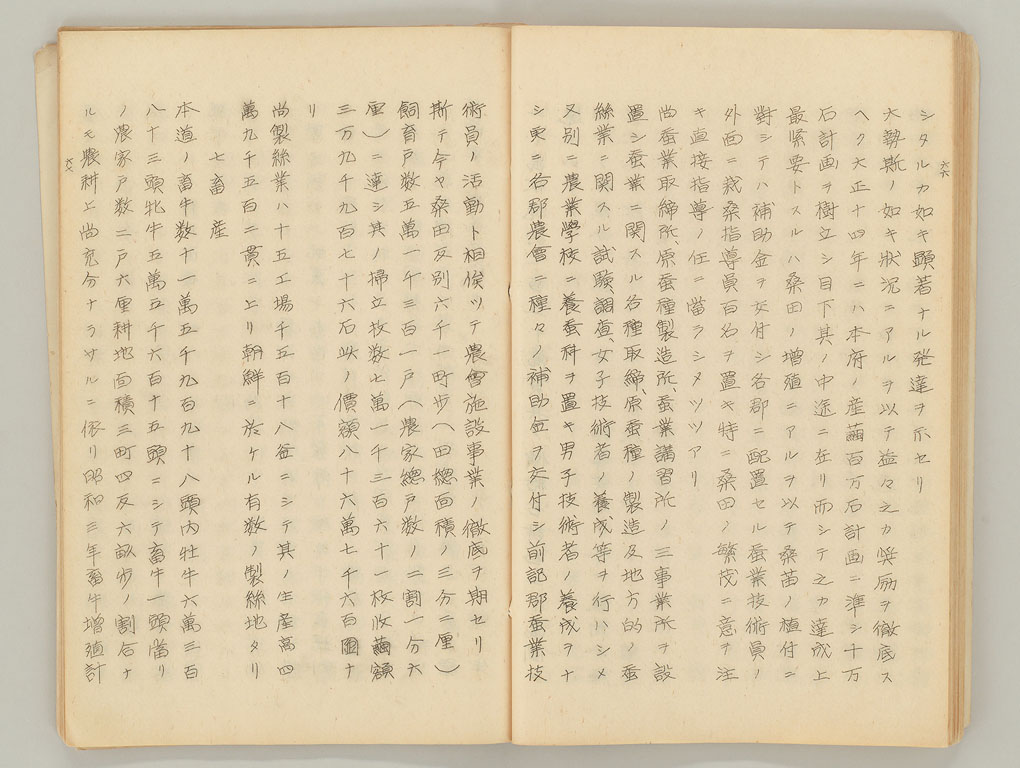 六六
シタルカ如キ顕著ナル発達ヲ示セリ
大勢斯ノ如キ状況ニアルヲ以テ益々之カ奨励ヲ徹底ス
ヘク大正十四年ニハ本府ノ産繭百万石計画ニ準シ十万
石計画ヲ樹立シ目下其ノ中途ニ在リ而シテ之カ達成上
最緊要トスルハ桑田ノ増殖ニアルヲ以テ桑苗ノ植付ニ
對シテハ補助金ヲ交付シ各郡ニ配置セル蚕業技術員ノ
外面ニ栽桑指導員百名ヲ置キ特ニ桑田ノ繁茂ニ意ヲ注
キ直接指導ノ任ニ當ラシメツツアリ
尚蚕業取締所、原蚕種製造所、蚕業講習所ノ三事業所ヲ設
置シ蚕業ニ関スル各種取締、原蚕種ノ製造及地方的ノ蚕
絲業ニ関スル試験調査、女子技術者ノ養成等ヲ行ハシメ
又別ニ農業学校ニ養蚕科ヲ置キ男子技術者ノ養成ヲナ
シ更ニ各郡農會ニ種々ノ補助金ヲ交付シ前記郡蚕業技
術員ノ活動ト相俟ツテ農會施設事業ノ徹底ヲ期セリ
斯テ今ヤ桑田反別六千一町歩（田總面積ノ三分二厘）
飼育戸数五萬一千三百一戸（農家總戸数ノ二割一分六
厘）ニ達シ其ノ掃立枚数七萬一千三百六十一枚收繭額
三万九千九百七十六石此ノ價額八十六萬七千六百圓ナ
リ
尚製絲業ハ十五工場千五百十八釜ニシテ其ノ生産高四
萬九千五百二貫ニ上リ朝鮮ニ於ケル有数ノ製絲地タリ
七 畜 産
本道ノ畜牛数十一萬五千九百九十八頭内牡牛六萬三百
八十三頭牝牛五萬五千六百十五頭ニシテ畜牛一頭當リ
ノ農家戸数二戸六厘耕地面積三町四反六畝歩ノ割合ナ
ルモ農耕上尚充分ナラサルニ依リ昭和三年畜牛増殖計
六七